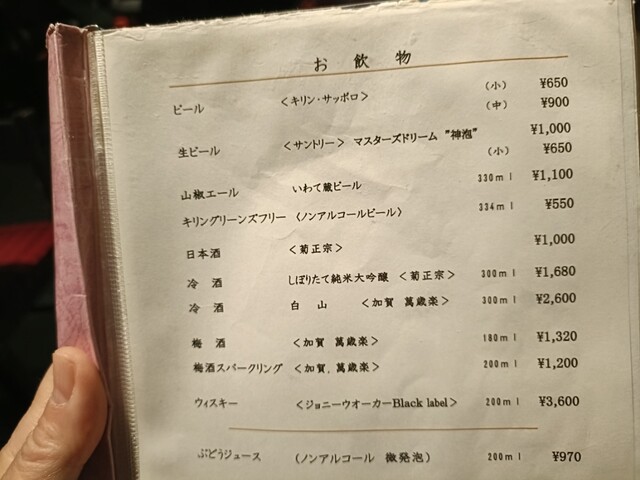 お飲物
ビール <キリン・サッポロ> (小) ¥650
(中) ¥900
生ビール <サントリー> マスターズドリーム "神泡" ¥1,000
(小) ¥650
山椒エール いわて蔵ビール 330ml ¥1,100
キリングリーンズフリー (ノンアルコールビール) 334ml ¥550
日本酒 <菊正宗> ¥1,000
冷酒 しぼりたて純米大吟醸 <菊正宗> 300ml ¥1,680
冷酒 白山 <加賀 萬歳楽> 300ml ¥2,600
梅酒 <加賀 萬歳楽> 180ml ¥1,320
梅酒スパークリング <加賀,萬歳楽> 200ml ¥1,200
ウィスキー <ジョニーウオーカーBlack label> 200ml ¥3,600
ぶどうジュース (ノンアルコール 微発泡) 200ml ¥970